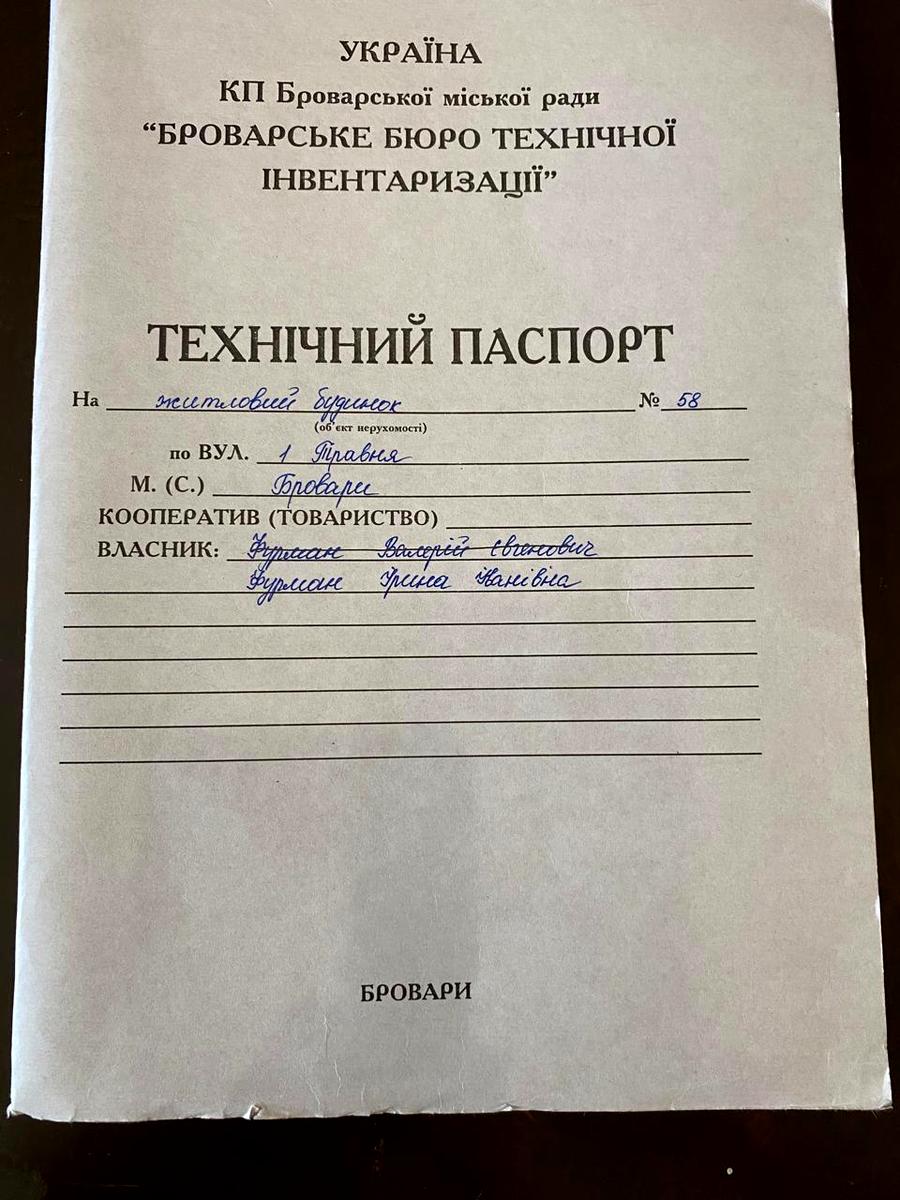 УКРАЇНА
КП Броварської міської ради
“БРОВАРСЬКЕ БЮРО ТЕХНІЧНОЇ
ІНВЕНТАРИЗАЦІЇ”
ТЕХНІЧНИЙ ПАСПОРТ
На житловий будинок № 58
(об'єкт нерухомості)
по ВУЛ. 1 Травня
М. (С.) Бровари
КООПЕРАТИВ (ТОВАРИСТВО)
ВЛАСНИК: Фурман Валерій Євгенович
Фурман Ірина Іванівна
БРОВАРИ